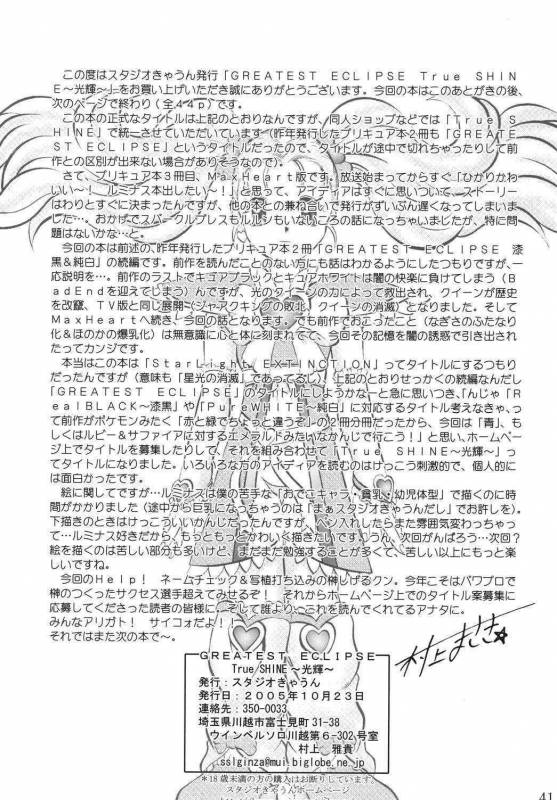 この度はスタジオきゃうん発行「GREATEST ECLIPSE True SHIN
E～光輝～」をお買い上げいただき誠にありがとうございます。今回の本はこのあとがきの後、
次のページで終わり(全44p)です。
この本の正式なタイトルは上記のとおりなんですが、同人ショップなどでは「True S
HINE」で統一させていただいています(昨年発行したプリキュア本2冊も「GREATE
ST ECLIPSE」というタイトルだったので、タイトルが途中で切れちゃったりして前
作との区別が出来ない場合がありそうなので)。
さて、プリキュア本3冊目、MaxHeart版です。放送始まってからすぐ「ひかりかわ
いい～! ルミナス本出したい～!」と思って、アイディアはすぐに思いついて、ストーリー
はわりとすぐに決まったんですが、他の本との兼ね合いで発行がずいぶん遅くなってしまいま
した…。おかげでスパークルブレスもルルンもいないころの話になっちゃいましたが、特に問
題はないかな…と。
今回の本は前述の、昨年発行したプリキュア本2冊「GREATEST ECLIPSE 漆
黒&純白」の続編です。前作を読んだことのない方にも話はわかるようにしたつもりですが、一
応説明を…。前作のラストでキュアブラックとキュアホワイトは闇の快楽に負けてしまう(B
adEndを迎えてしまう)んですが、光のクイーンの力によって救出され、クイーンが歴史
を改竄、TV版と同じ展開(ジャアクキングの敗北、クイーンの消滅)となりました。そして
MaxHeartへ続き、今回の話となります。でも前作でおこったこと(なぎさのふたなり
化&ほのかの爆乳化)は無意識に心と体に刻まれてて、今回その記憶を闇の誘惑で引き出され
たってカンジです。
本当はこの本は「StarLight EXTINCTION」ってタイトルにするつもり
だったんですが(意味も「星光の消滅」であってるし)、上記のとおりせっかくの続編なんだし
「GREATEST ECLIPSE」のタイトルにしようかなーと急に思いつき、「んじゃ「R
ealBLACK～漆黒」や「PureWHITE～純白」に対応するタイトル考えなきゃ、っ
て前作がポケモンみたく「赤と緑でちょっと違うぞ」の2冊分だったから、今回は「青」、も
しくはルビー&サファイアに対するエメラルドみたいなかんじで行こう!」と思い、ホームペー
ジ上でタイトルを募集したりして、それを組み合わせて「True SHINE～光輝～」っ
てタイトルになりました。いろいろな方のアイディアを読むのはけっこう刺激的で、個人的に
は面白かったです。
絵に関してですが…ルミナスは僕の苦手な「おでこキャラ・貧乳・幼児体型」で描くのに時
間がかかりました(途中から巨乳になっちゃうのは「まぁスタジオきゃうんだし」でお許しを)。
下描きのときはけっこういいかんじだったんですが、ペン入れしたらまた雰囲気変わっちゃっ
て…ルミナス好きだから、もっともっとかわいく描きたいです。うん、次回がんばろう…次回?
絵を描くのは苦しい部分も多いけど、まだまだ勉強することが多くて、苦しい以上にもっと楽
しいですね。
今回のHelp! ネームチェック&写植打ち込みの榊しげるクン。今年こそはパワプロで
榊のつくったサクセス選手超えてみせるぞ! それからホームページ上でのタイトル案募集に
応募してくださった読者の皆様に、そして誰より、これを読んでくれてるアナタに。
みんなアリガト! サイコォだよ!!
それではまた次の本で～。
村上まさき☆
GREATEST ECLIPSE
True SHINE～光輝～
発行:スタジオきゃうん
発行日:2005年10月23日
連絡先:350-0033
埼玉県川越市富士見町31-38
ウインベルソロ川越第6-302号室
村上 雅貴
sslginza@mui.biglobe.ne.jp
*18歳未満の方の購入はお断りしています。
スタジオきゃうんホームページ
41